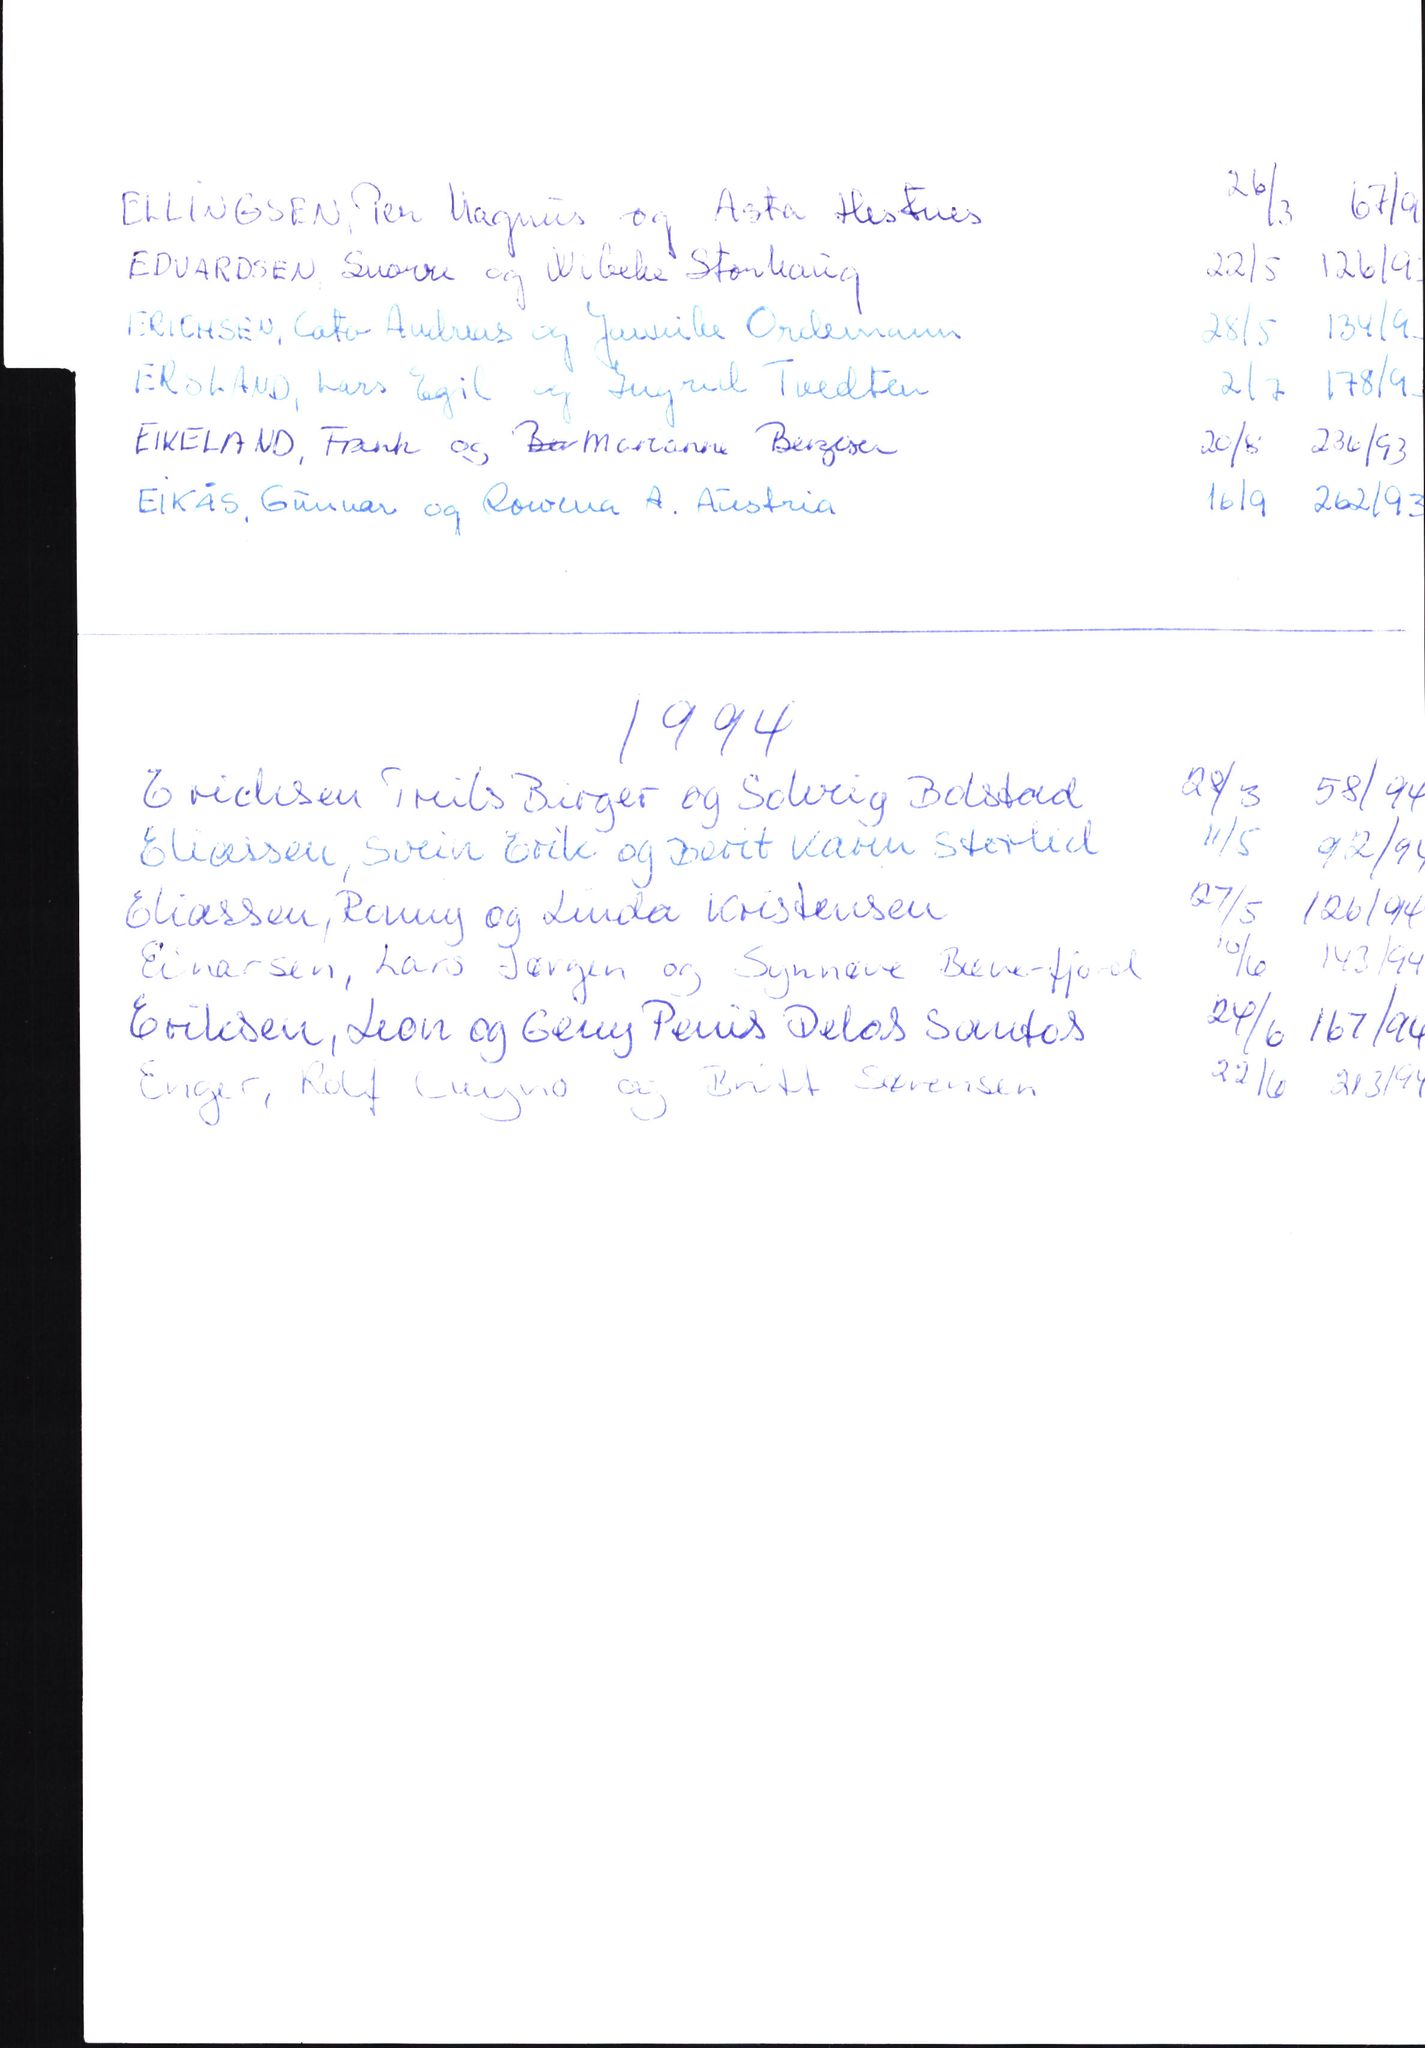 ELLINGSEN, Per Magnus og Asta Hestnes 26/3 67/9
EDVARDSEN, Snorre og Wibeke Storhaug 22/5 126/93
ERICHSEN, Cato Andreas og Jannike Ordemann 28/5 134/93
ERSLAND, Lars Egil og Ingrid Tvedten 2/7 178/93
EIKELAND, Frank og Marianne Bergesen 20/8 236/93
EIKÅS, Gunnar og Rowena A. Austria 16/9 262/93
1994
Erichsen Truls Birger og Solveig Bolstad 28/3 58/94
Eliassen, Svein Erik og Berit Karin Storlid 11/5 92/94
Eliassen, Ronny og Linda Kristensen 27/5 126/94
Einarsen, Lars Jørgen og Synnøve Bæverfjord 10/6 143/94
Eriksen, Leon og Geny Penis Delos Santos 24/6 167/94
Enger, Rolf og Britt Sørensen 22/6 213/94